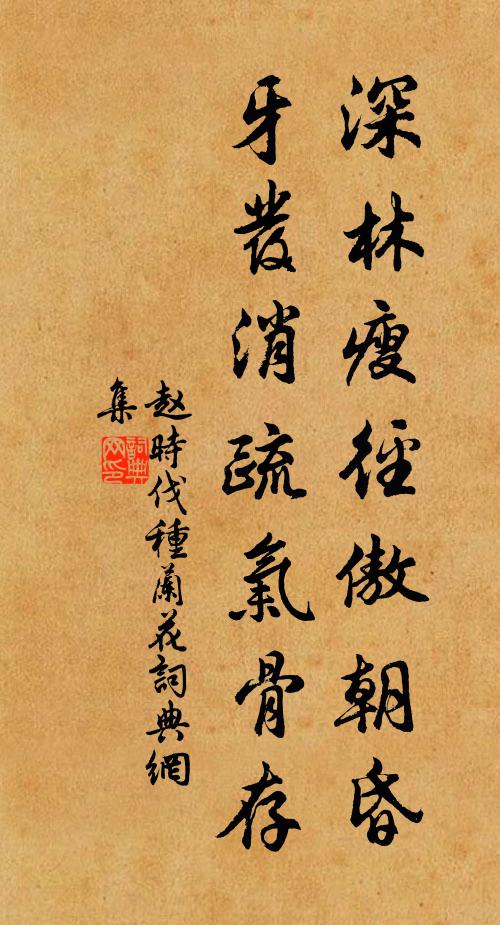 深林瘦徑傲朝昏
牙發消疏氣骨存
赵時伐種蘭花詞典網
集
詞典网印